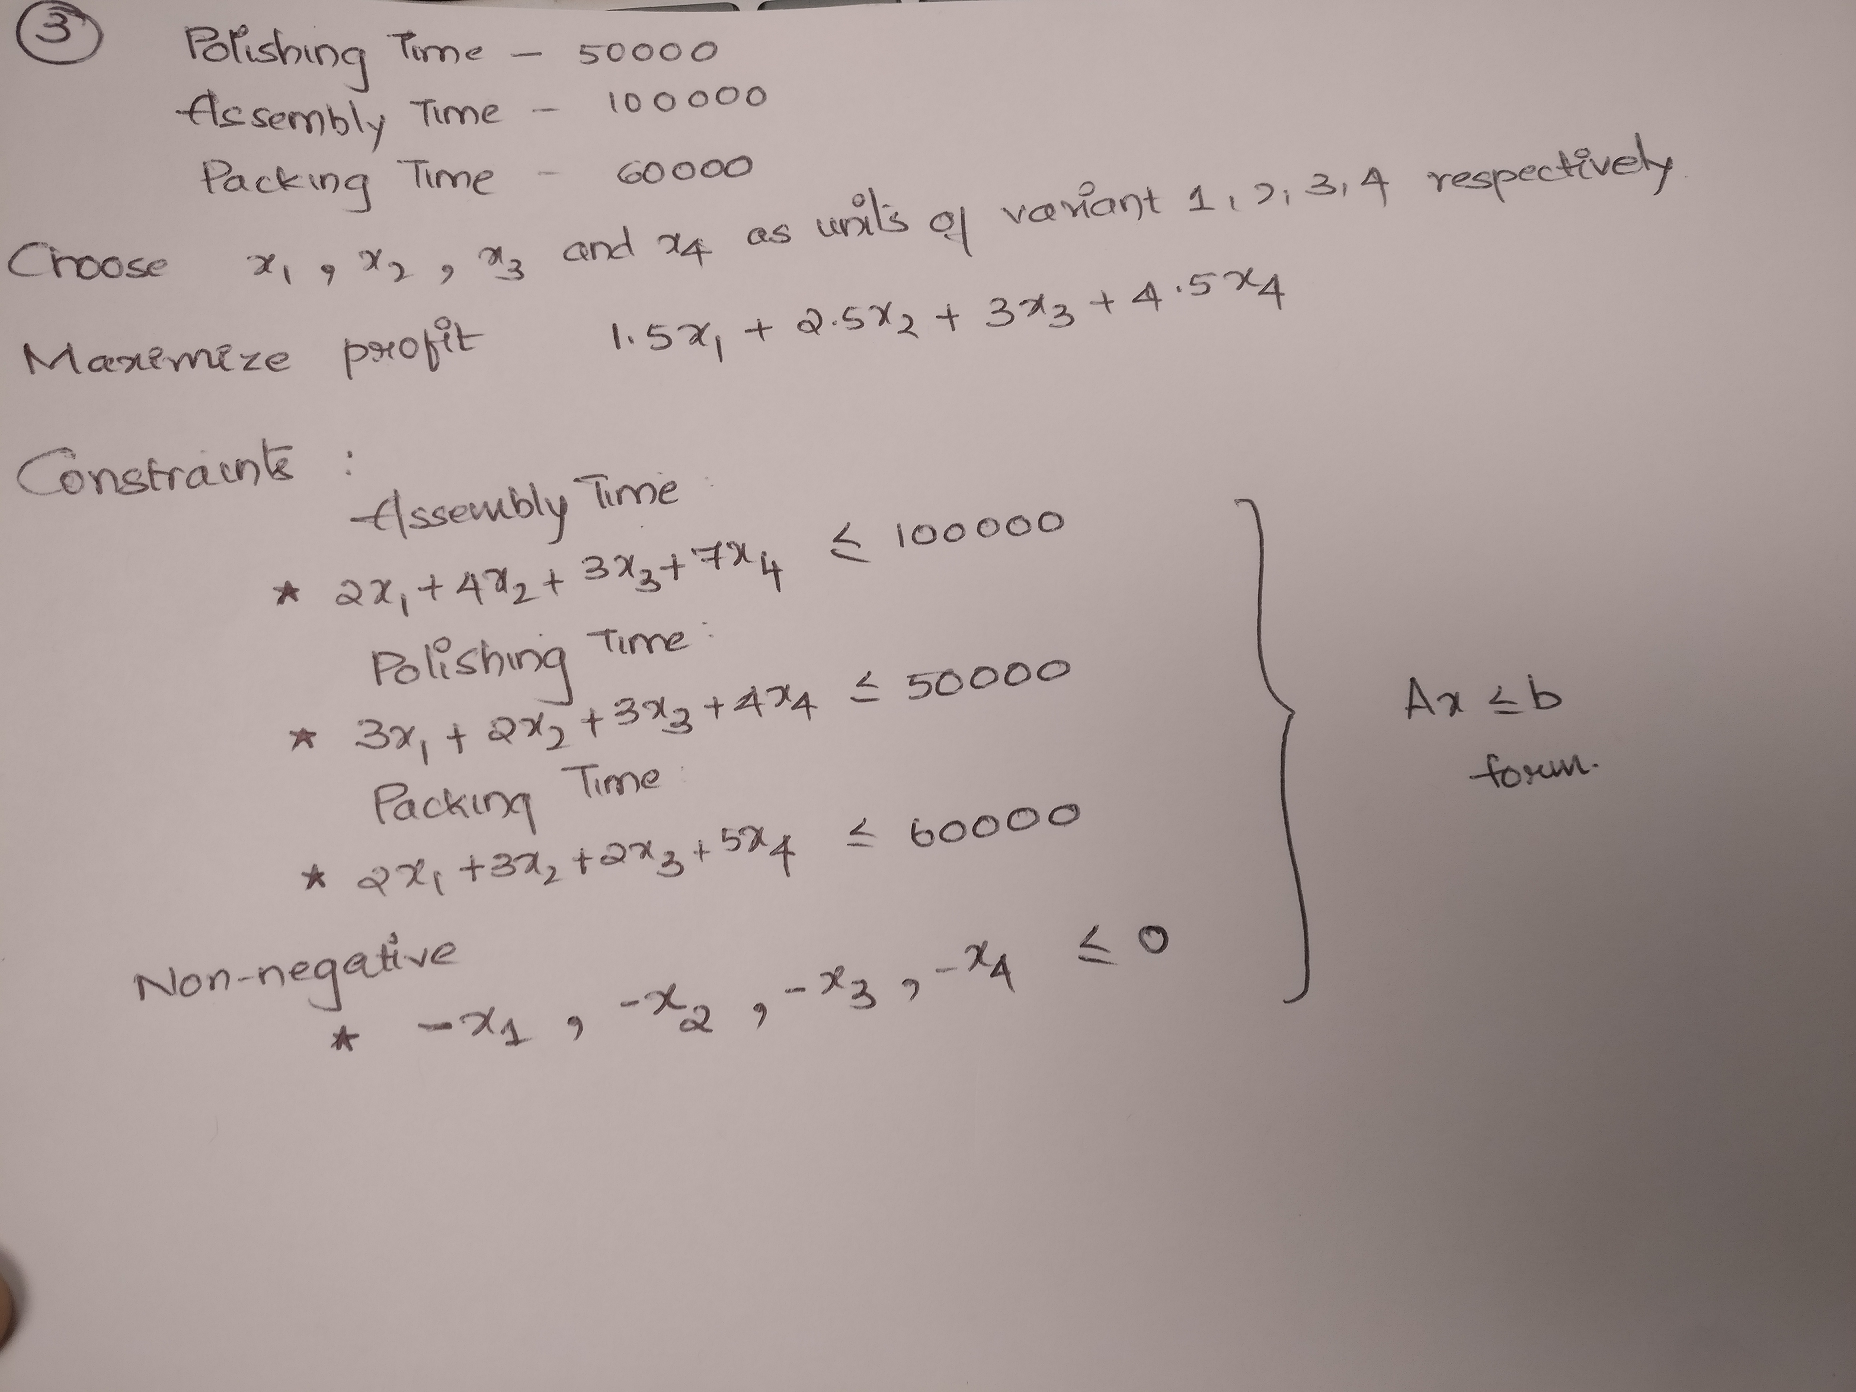 3
Polishing Time - 50000
Assembly Time - 100000
Packing Time - 60000
Choose x₁, x₂, x₃ and x₄ as units of variant 1, 2, 3, 4 respectively.
Maximize profit 1.5x₁ + 2.5x₂ + 3x₃ + 4.5x₄
Constraints :
Assembly Time :
* 2x₁ + 4x₂ + 3x₃ + 7x₄ ≤ 100000
Polishing Time :
* 3x₁ + 2x₂ + 3x₃ + 4x₄ ≤ 50000
Packing Time :
* 2x₁ + 3x₂ + 2x₃ + 5x₄ ≤ 60000
Non-negative
* -x₁, -x₂, -x₃, -x₄ ≤ 0
Ax ≤ b
form.